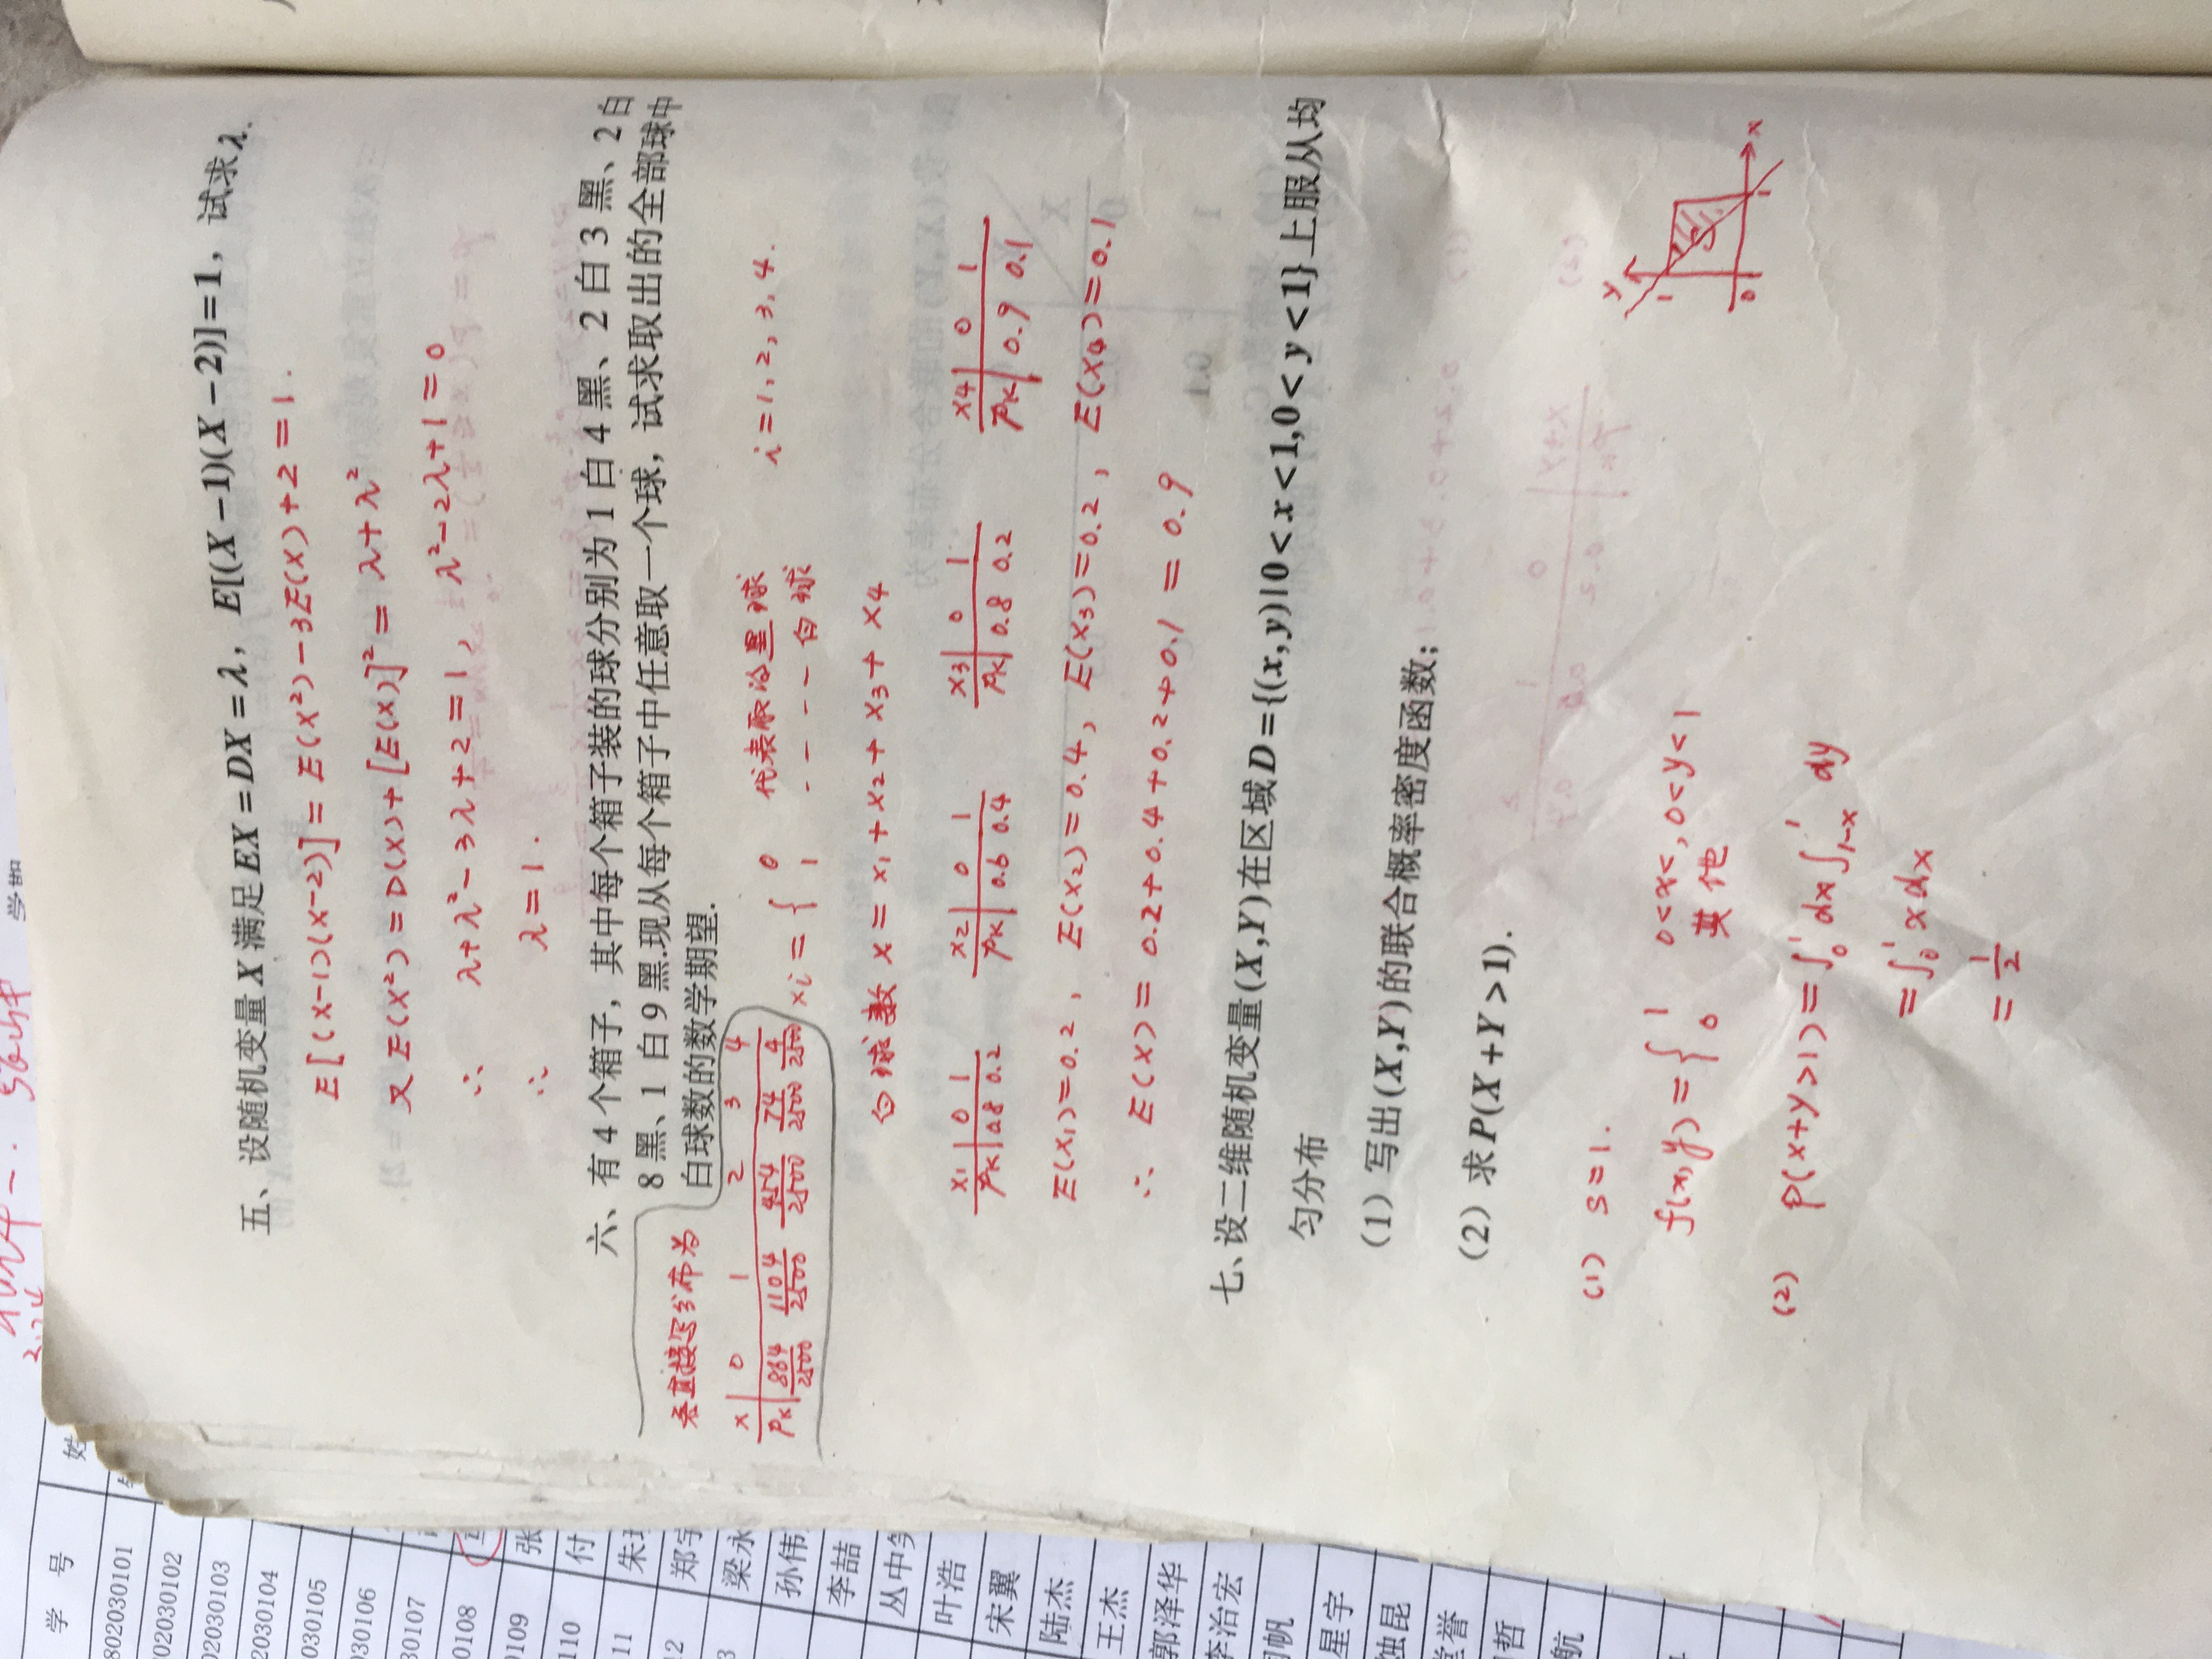 学期
学 号
姓
802030101
02030102
02030103
2030104
030105
030106
30107
0108
0109
张
110
付
11
朱
12
郑宇
3
梁永
孙伟
李喆
丛中笑
叶浩
宋翼
陆杰
王杰
郭泽华
李治宏
帆
星宇
烛昆
誉
哲
航
五、设随机变量 X 满足 EX = DX = λ, E[(X −1)(X −2)]=1, 试求λ.
E[(X-1)(X-2)] = E(X²)-3E(X)+2 = 1.
又 E(X²) = D(X)+[E(X)]² = λ+λ²
∴ λ+λ²-3λ+2 = 1, λ²-2λ+1 = 0
∴ λ = 1.
六、有 4 个箱子, 其中每个箱子装的球分别为 1 白 4 黑、2 白 3 黑、2 白
8 黑、1 白 9 黑.现从每个箱子中任意取一个球, 试求取出的全部球中
白球数的数学期望.
若直接写分布为
x 0 1 2 3 4
Pk 864/2500 1104/2500 454/2500 74/2500 4/2500
xi = { 0 代表取的黑球 i = 1, 2, 3, 4.
1 - - - - 白球
白球数 x = x₁ + x₂ + x₃ + x₄
x₁ 0 1 x₂ 0 1 x₃ 0 1 x₄ 0 1
Pk 0.8 0.2 Pk 0.6 0.4 Pk 0.8 0.2 Pk 0.9 0.1
E(x₁)=0.2, E(x₂)=0.4, E(x₃)=0.2, E(x₄)=0.1
∴ E(x) = 0.2+0.4+0.2+0.1 = 0.9
七、设二维随机变量(X,Y)在区域D={(x,y)|0<x<1,0<y<1}上服从均
匀分布
(1) 写出(X,Y)的联合概率密度函数;
(2) 求P(X+Y>1).
(1) S=1.
f(x,y) = { 1 0<x<, 0<y<1
0 其他
y
1
S
0 1 x
(2) P(x+y>1) = ∫₀¹ dx ∫₁₋ₓ¹ dy
= ∫₀¹ x dx
= 1/2